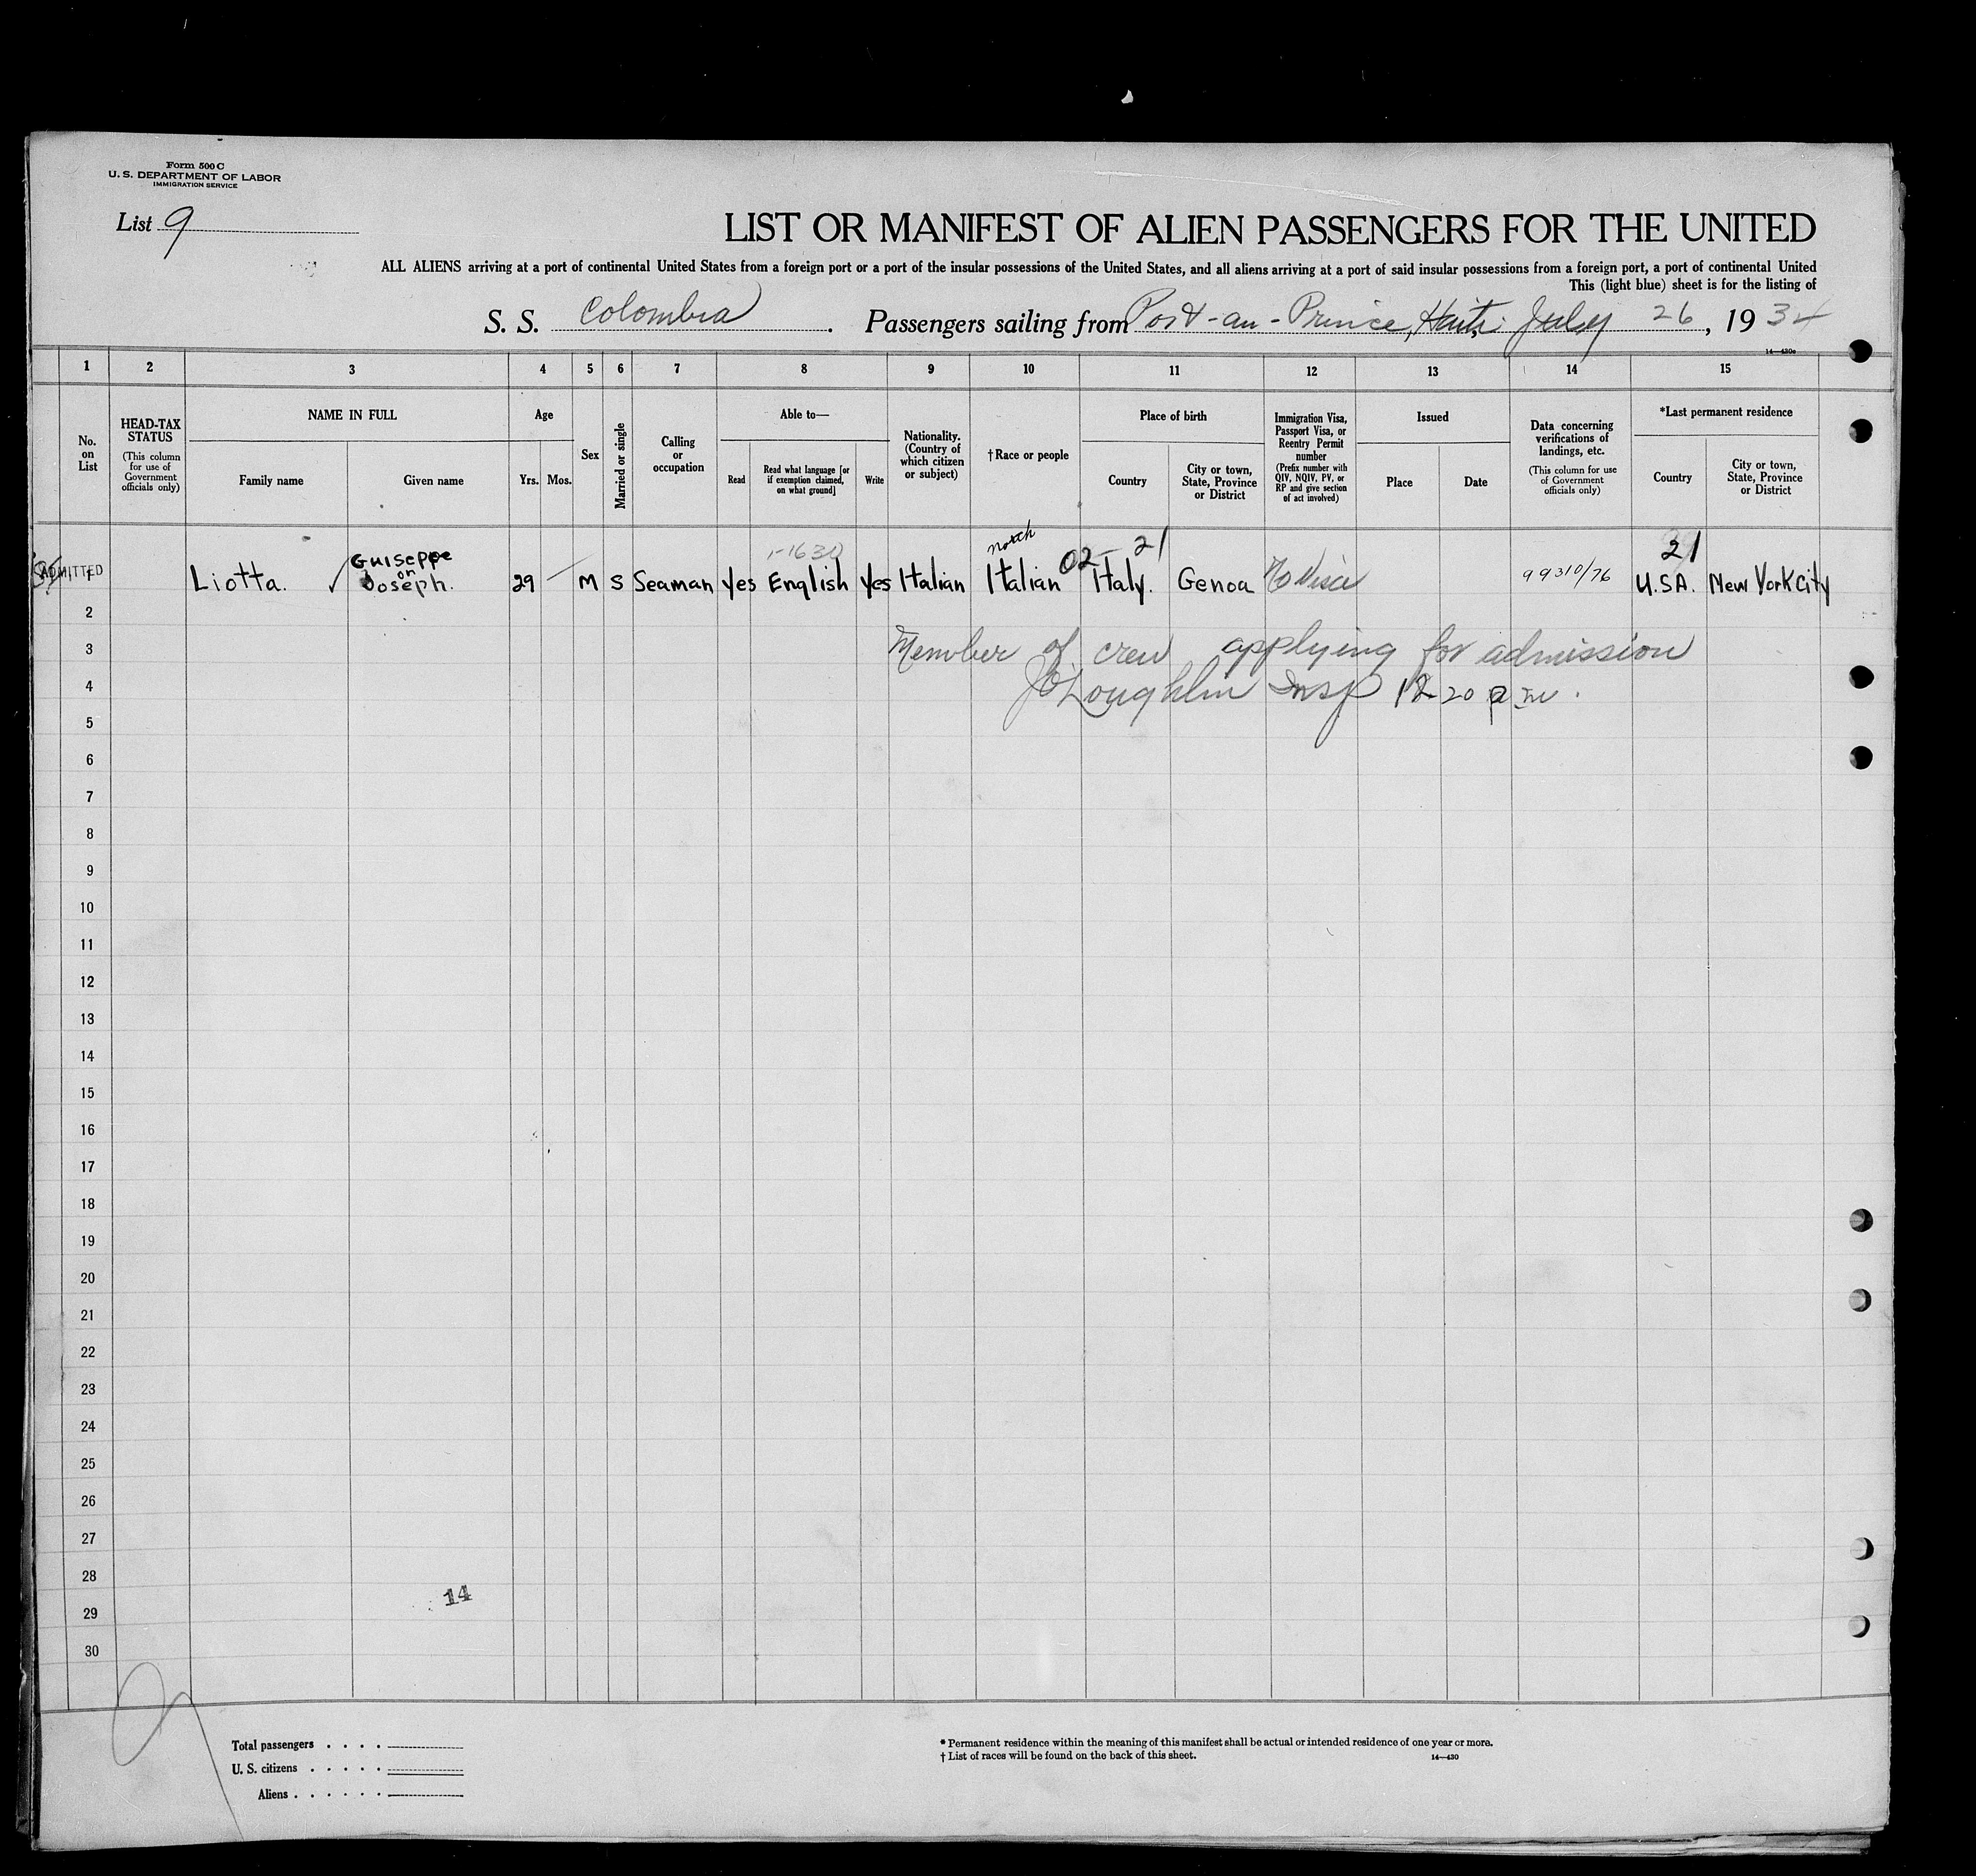 Form 500 C
U. S. DEPARTMENT OF LABOR
IMMIGRATION SERVICE
List 9
LIST OR MANIFEST OF ALIEN PASSENGERS FOR THE UNITED
ALL ALIENS arriving at a port of continental United States from a foreign port or a port of the insular possessions of the United States, and all aliens arriving at a port of said insular possessions from a foreign port, a port of continental United
This (light blue) sheet is for the listing of
S. S. Colombia . Passengers sailing from Port-au-Prince, Haiti July 26, 1934
14—430c
1 2 3 4 5 6 7 8 9 10 11 12 13 14 15
No. on List
HEAD-TAX STATUS (This column for use of Government officials only)
NAME IN FULL
Family name Given name
Age
Yrs. Mos.
Sex
Married or single
Calling or occupation
Able to—
Read Read what language [or if exemption claimed, on what ground] Write
Nationality. (Country of which citizen or subject)
†Race or people
Place of birth
Country City or town, State, Province or District
Immigration Visa, Passport Visa, or Reentry Permit number (Prefix number with QIV, NQIV, PV, or RP and give section of act involved)
Issued
Place Date
Data concerning verifications of landings, etc. (This column for use of Government officials only)
*Last permanent residence
Country City or town, State, Province or District
north
Guiseppe 1-1630 02- 21 21
ADMITTED 1 Liotta. ✓ or Joseph. 29 M S Seaman Yes English Yes Italian Italian Italy. Genoa No Visa 99310/76 U.S.A. New York City
2
3 Member of crew applying for admission
4 J O'Loughlin Insp 12-20 p.m.
5
6
7
8
9
10
11
12
13
14
15
16
17
18
19
20
21
22
23
24
25
26
27
28
14
29
30
Total passengers . . . .
U. S. citizens . . . . .
Aliens . . . . . .
* Permanent residence within the meaning of this manifest shall be actual or intended residence of one year or more.
† List of races will be found on the back of this sheet. 14—430